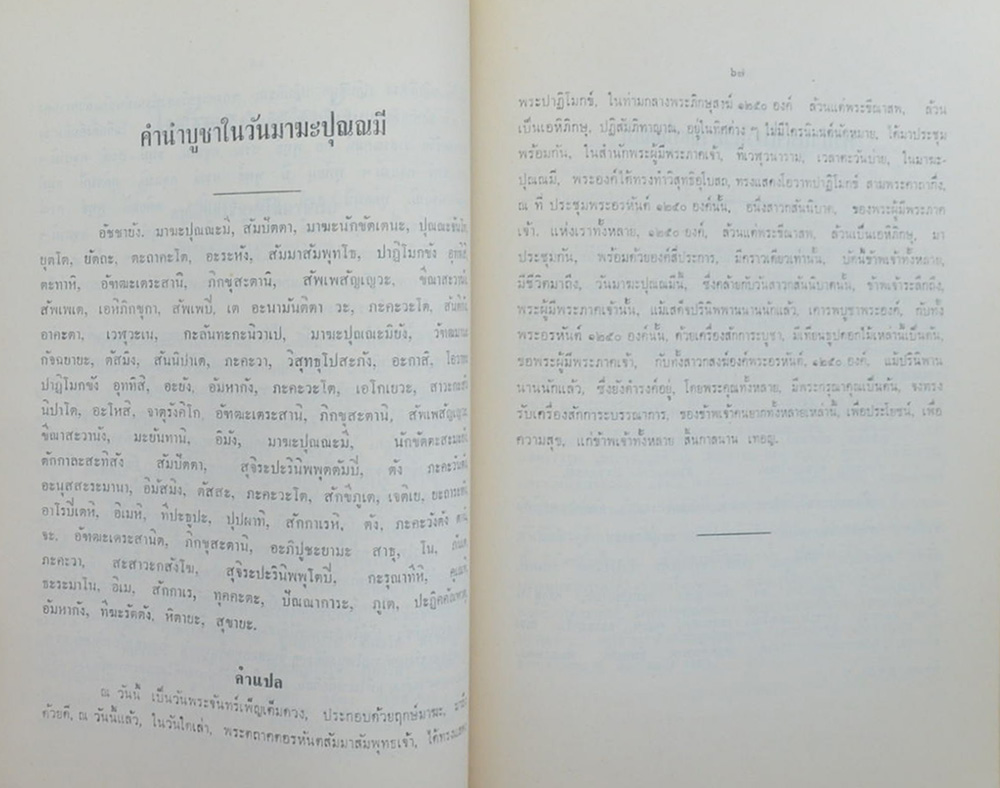 คำนำบูชาในวันมาฆะปุณณมี
อัชชายัง. มาฆะปุณณะมี, สัมปัตตา, มาฆะนักขัตเตนะ, ปุณณะจันโท,
ยุตโต, ยัตถะ, ตะถาคะโต, อะระหัง, สัมมาสัมพุทโธ, ปาฏิโมกขัง
ตะทาหิ, อัฑฒะเตระสานิ, ภิกขุสะตานิ, สัพเพสัญเญวะ,
สัพเพเต, เอหิภิกขุกา, สัพเพปิ, เต อะนามันติตา วะ, ภะคะวะโต,
อาคะตา, เวฬุวะเน, กะลันทะกะนิวาเป, มาฆะปุณณะมิยัง,
กัจฉายายะ, ตัสมิง, สันนิปาเต, ภะคะวา, วิสุทธุโปสะถัง, อะกาสิ,
ปาฏิโมกขัง อุททิสิ, อะยัง, อัมหากัง, ภะคะวะโต, เอโกเยวะ,
นิปาโต, อะโหสิ, จาตุรังคิโก, อัฑฒะเตระสานิ, ภิกขุสะตานิ,
ขีณาสะวานัง, มะยันทานิ, อิมัง, มาฆะปุณณะมี,
ตักกาละสะทิสัง สัมปัตตา, สุจิระปะรินิพพุตตัมปิ, ตัง
อะนุสสะระมานา, อิมัสมิง, ตัสสะ, ภะคะวะโต, สักขีภูเต, เจติเย,
อาโรปิเตหิ, อิเมหิ, ทีปะธูปะ, ปุปผาทิ, สักกาเรหิ, ตัง,
จะ. อัฑฒะเตระสานิ, ภิกขุสะตานิ, อะภิปูชะยามะ สาธุ, โน,
ภะคะวา, สะสาวะกสังโฆ, สุจิระปะรินิพพุโตปิ,
ธะระมาโน, อิเม, สักกาเร, ทุคคะตะ, ปัณณาการะ, ภูเต,
อัมหากัง, ทีฆะรัตตัง, หิตายะ, สุขายะ.
คำแปล
ณ วันนี้ เป็นวันพระจันทร์เพ็ญเต็มดวง, ประกอบด้วยฤกษ์มาฆะ,
ด้วยดี, ณ วันนี้แล้ว, ในวันใดเล่า, พระตถาคตอรหันตสัมมาสัมพุทธเจ้า,
๖๗
พระปาฏิโมกข์, ในท่ามกลางพระภิกษุสงฆ์ ๑๒๕๐ องค์ ล้วนแต่พระขีณาสพ, ล้วน
เป็นเอหิภิกษุ, ปฏิสัมภิทาญาณ, อยู่ในทิศต่าง ๆ ไม่มีใครนิมนต์นัดหมาย, ได้มาประชุม
พร้อมกัน, ในสำนักพระผู้มีพระภาคเจ้า, ที่เวฬุวนาราม, เวลาตะวันบ่าย, ในมาฆะ-
ปุณณมี, พระองค์ได้ทรงทำวิสุทธิอุโบสถ, ทรงแสดงโอวาทปาฏิโมกข์ สามพระคาถากึ่ง,
ณ ที่ ประชุมพระอรหันต์ ๑๒๕๐ องค์นั้น, อนึ่งสาวกสันนิบาต, ของพระผู้มีพระภาค
เจ้า, แห่งเราทั้งหลาย, ๑๒๕๐ องค์, ล้วนแต่พระขีณาสพ, ล้วนเป็นเอหิภิกษุ, มา
ประชุมกัน, พร้อมด้วยองค์สี่ประการ, มีคราวเดียวเท่านั้น, บัดนี้ข้าพเจ้าทั้งหลาย,
มีชีวิตมาถึง, วันมาฆะปุณณมีนี้, ซึ่งคล้ายกับวันสาวกสันนิบาตนั้น, ข้าพเจ้าระลึกถึง,
พระผู้มีพระภาคเจ้านั้น, แม้เสด็จปรินิพพานนานนักแล้ว, เคารพบูชาพระองค์, กับทั้ง
พระอรหันต์ ๑๒๕๐ องค์นั้น, ด้วยเครื่องสักการะบูชา, มีเทียนธูปดอกไม้เหล่านี้เป็นต้น,
ขอพระผู้มีพระภาคเจ้า, กับทั้งสาวกสงฆ์องค์พระอรหันต์, ๑๒๕๐ องค์, แม้ปรินิพพาน
นานนักแล้ว, ซึ่งยังดำรงค์อยู่, โดยพระคุณทั้งหลาย, มีพระกรุณาคุณเป็นต้น, จงทรง
รับเครื่องสักการะบรรณาการ, ของข้าพเจ้าคนยากทั้งหลายเหล่านี้, เพื่อประโยชน์, เพื่อ
ความสุข, แก่ข้าพเจ้าทั้งหลาย สิ้นกาลนาน เทอญ.